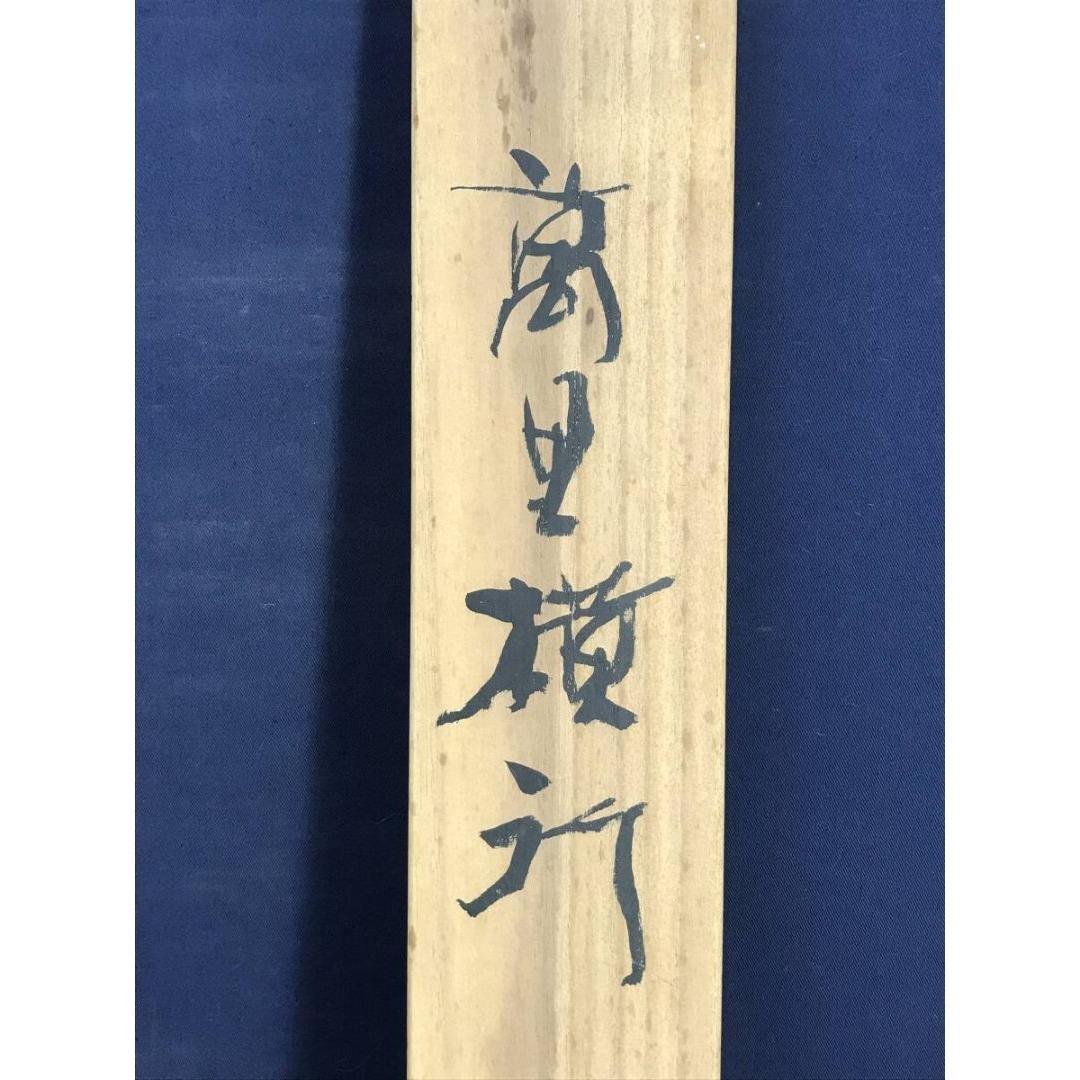 萬里横行